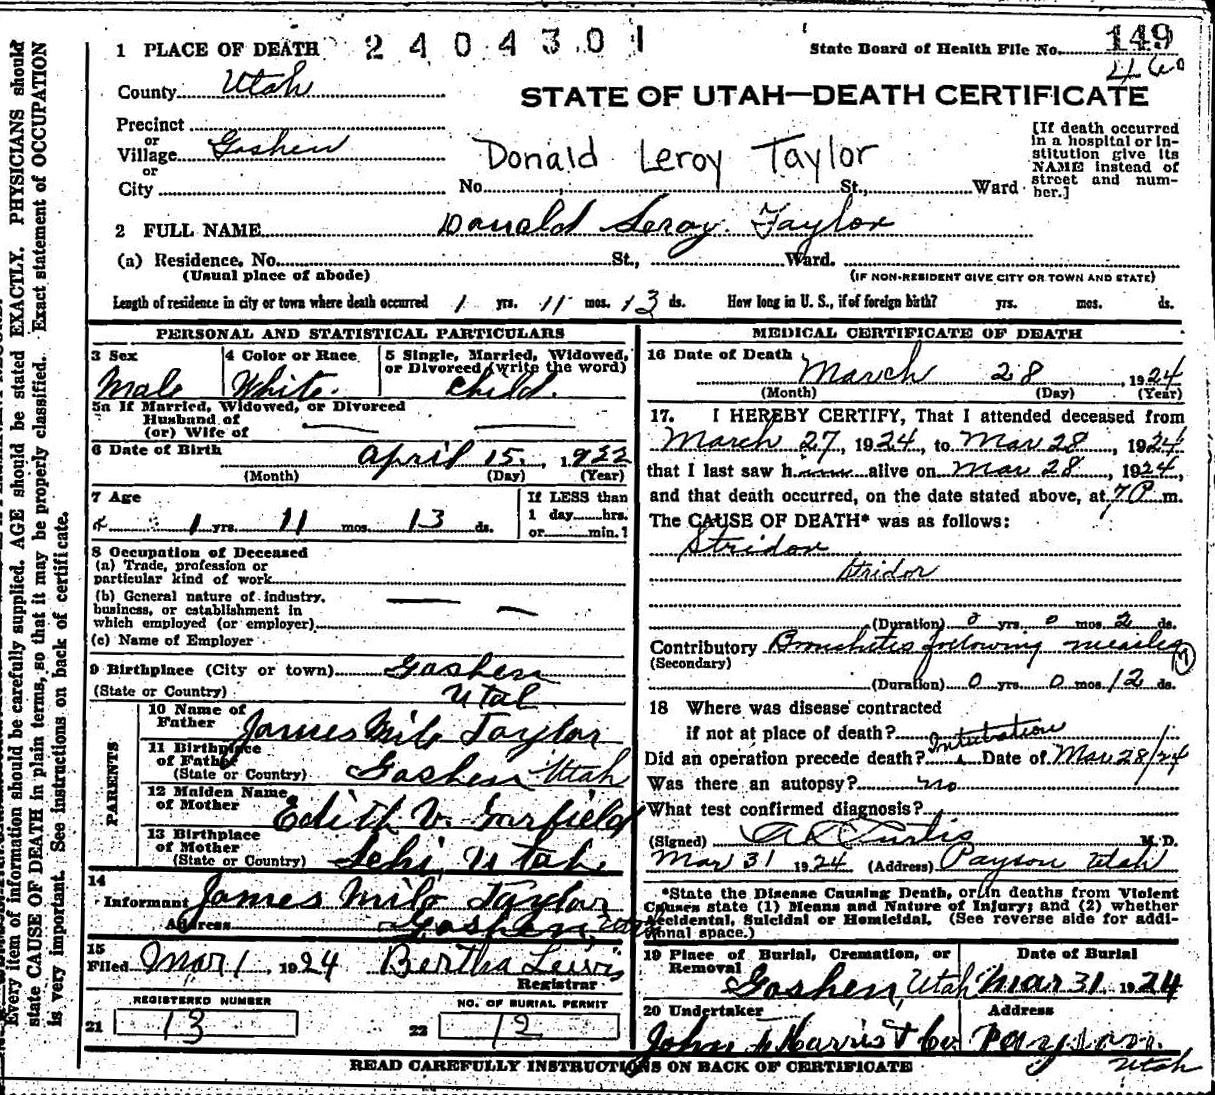 1 PLACE OF DEATH 2404301 State Board of Health File No. 149
460
County Utah
STATE OF UTAH—DEATH CERTIFICATE
Precinct
or
Village Goshen
or
City
Donald Leroy Taylor
No. St., Ward
[If death occurred
in a hospital or in-
stitution give its
NAME instead of
street and num-
ber.]
2 FULL NAME Donald Leroy Taylor
(a) Residence, No. St., Ward.
(Usual place of abode) (IF NON-RESIDENT GIVE CITY OR TOWN AND STATE)
Length of residence in city or town where death occurred 1 yrs. 11 mos. 13 ds. How long in U. S., if of foreign birth? yrs. mos. ds.
PERSONAL AND STATISTICAL PARTICULARS
3 Sex
Male
4 Color or Race
White.
5 Single, Married, Widowed,
or Divorced (write the word)
child.
5a If Married, Widowed, or Divorced
Husband of
(or) Wife of
6 Date of Birth
April 15, 1922
(Month) (Day) (Year)
7 Age
1 yrs. 11 mos. 13 ds.
If LESS than
1 day hrs.
or min.?
8 Occupation of Deceased
(a) Trade, profession or
particular kind of work
(b) General nature of industry,
business, or establishment in
which employed (or employer)
(c) Name of Employer
9 Birthplace (City or town) Goshen
(State or Country) Utah
PARENTS
10 Name of
Father James Milo Taylor
11 Birthplace
of Father
(State or Country) Goshen Utah
12 Maiden Name
of Mother Edith V. Garfield
13 Birthplace
of Mother
(State or Country) Lehi, Utah
14
Informant James Milo Taylor
Address Goshen, Utah
15
Filed Mar 1, 1924 Bertha Lewis
Registrar
REGISTERED NUMBER NO. OF BURIAL PERMIT
21 13 22 12
MEDICAL CERTIFICATE OF DEATH
16 Date of Death
March 28, 1924
(Month) (Day) (Year)
17. I HEREBY CERTIFY, That I attended deceased from
March 27, 1924, to Mar 28, 1924
that I last saw him alive on Mar 28, 1924,
and that death occurred, on the date stated above, at 7 P m.
The CAUSE OF DEATH* was as follows:
Stridor
Stridor
(Duration) 0 yrs. 0 mos. 2 ds.
Contributory Bronchitis following measles
(Secondary)
(Duration) 0 yrs. 0 mos. 12 ds.
18 Where was disease contracted
if not at place of death?
Did an operation precede death? Intubation Date of Mar 28/24
Was there an autopsy? no
What test confirmed diagnosis?
(Signed) A L Curtis M. D.
Mar 31 1924 (Address) Payson Utah
*State the Disease Causing Death, or in deaths from Violent
Causes state (1) Means and Nature of Injury; and (2) whether
Accidental, Suicidal or Homicidal. (See reverse side for addi-
tional space.)
19 Place of Burial, Cremation, or
Removal
Goshen, Utah
Date of Burial
Mar 31 1924
20 Undertaker
John Harris & Co.
Address
Payson.
Utah
READ CAREFULLY INSTRUCTIONS ON BACK OF CERTIFICATE
Every item of information should be carefully supplied. AGE should be stated EXACTLY. PHYSICIANS should
state CAUSE OF DEATH in plain terms, so that it may be properly classified. Exact statement of OCCUPATION
is very important. See instructions on back of certificate.